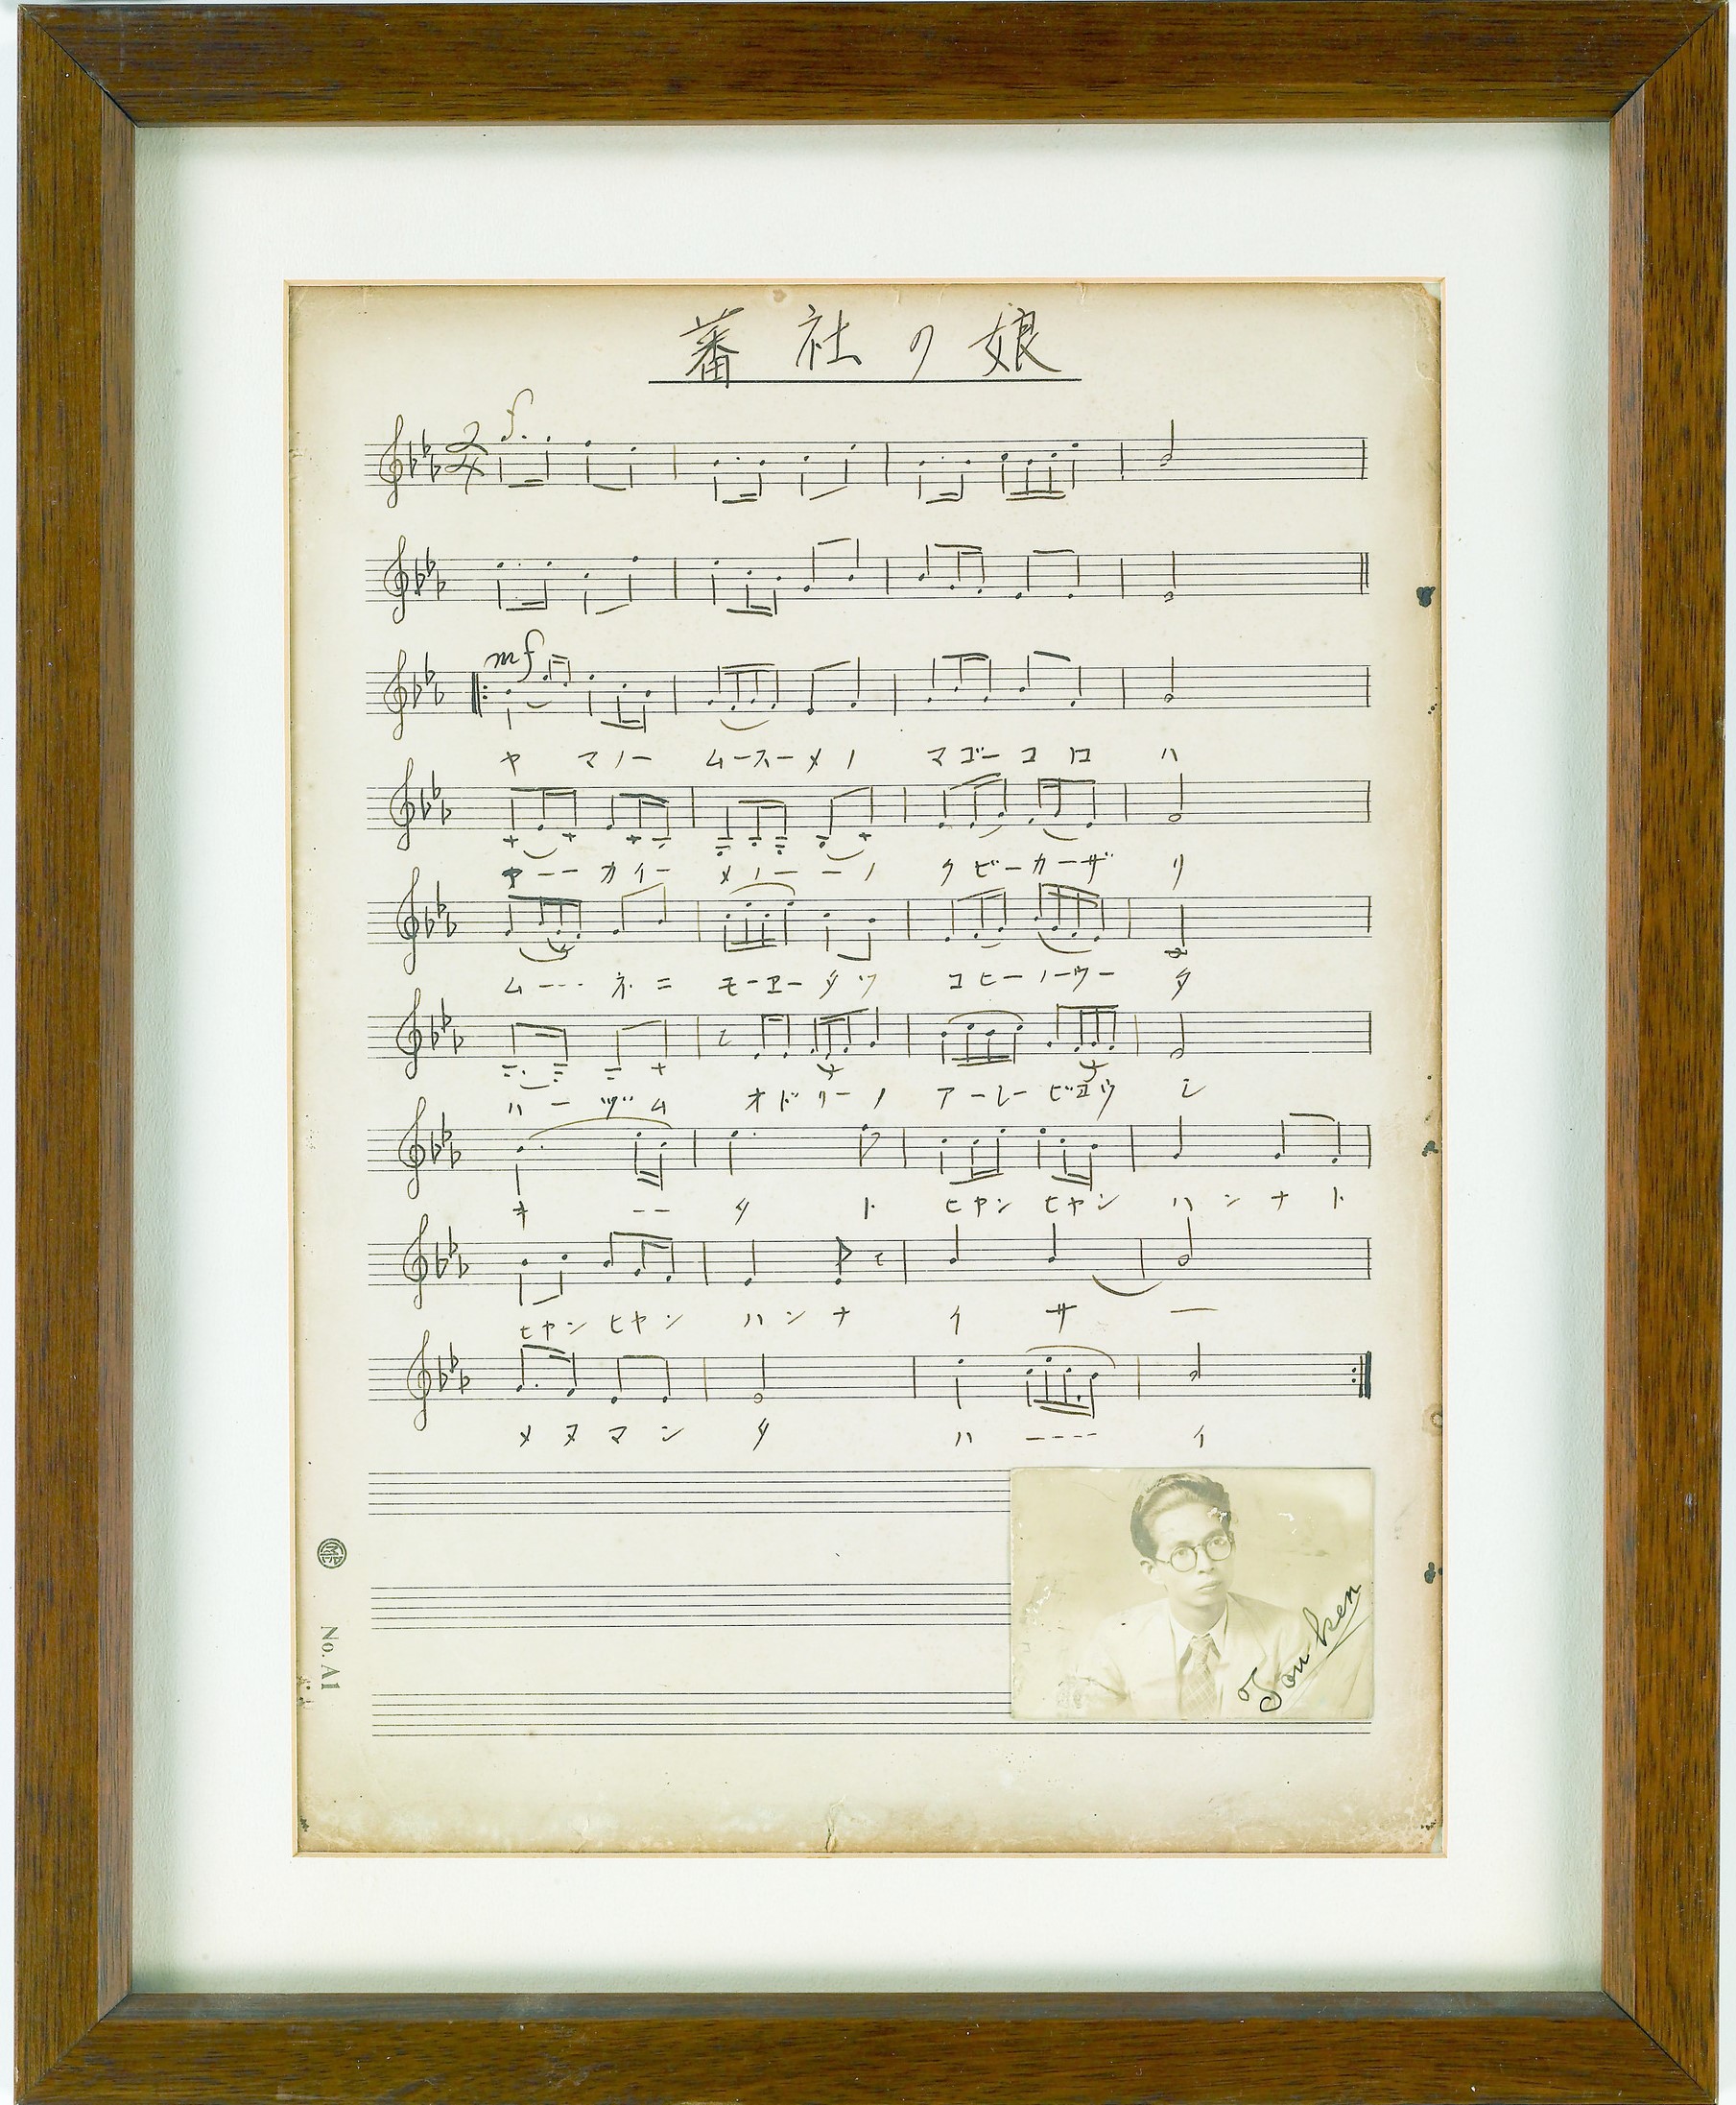 蕃社の娘
f
mf
ヤ マノー ムースーメノ マゴーコロ ハ
ヤーーカイー メノーーノ クビーカーザ リ
ムー--ネニ モーエータツ コヒーノウー タ
ハーヅム オドリーノ アーレービヨウ シ
キ -- タ ト ヒヤン ヒヤン ハンナト
ヒヤン ヒヤン ハンナ イ サ ー
メヌマン タ ハ ---- イ
No. A1
Tou ken